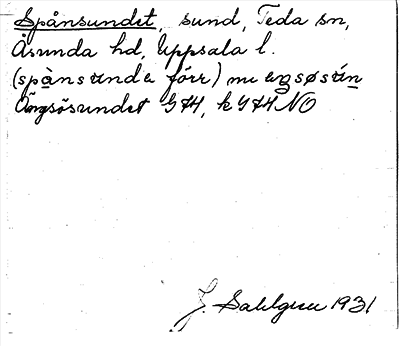 Spånsundet, sund, Teda sn,
Åsunda hd, Uppsala l.
(spànsunda förr) nu engsøsún
Ängsösundet G74, k Y74 NO
J. Sahlgren 1931